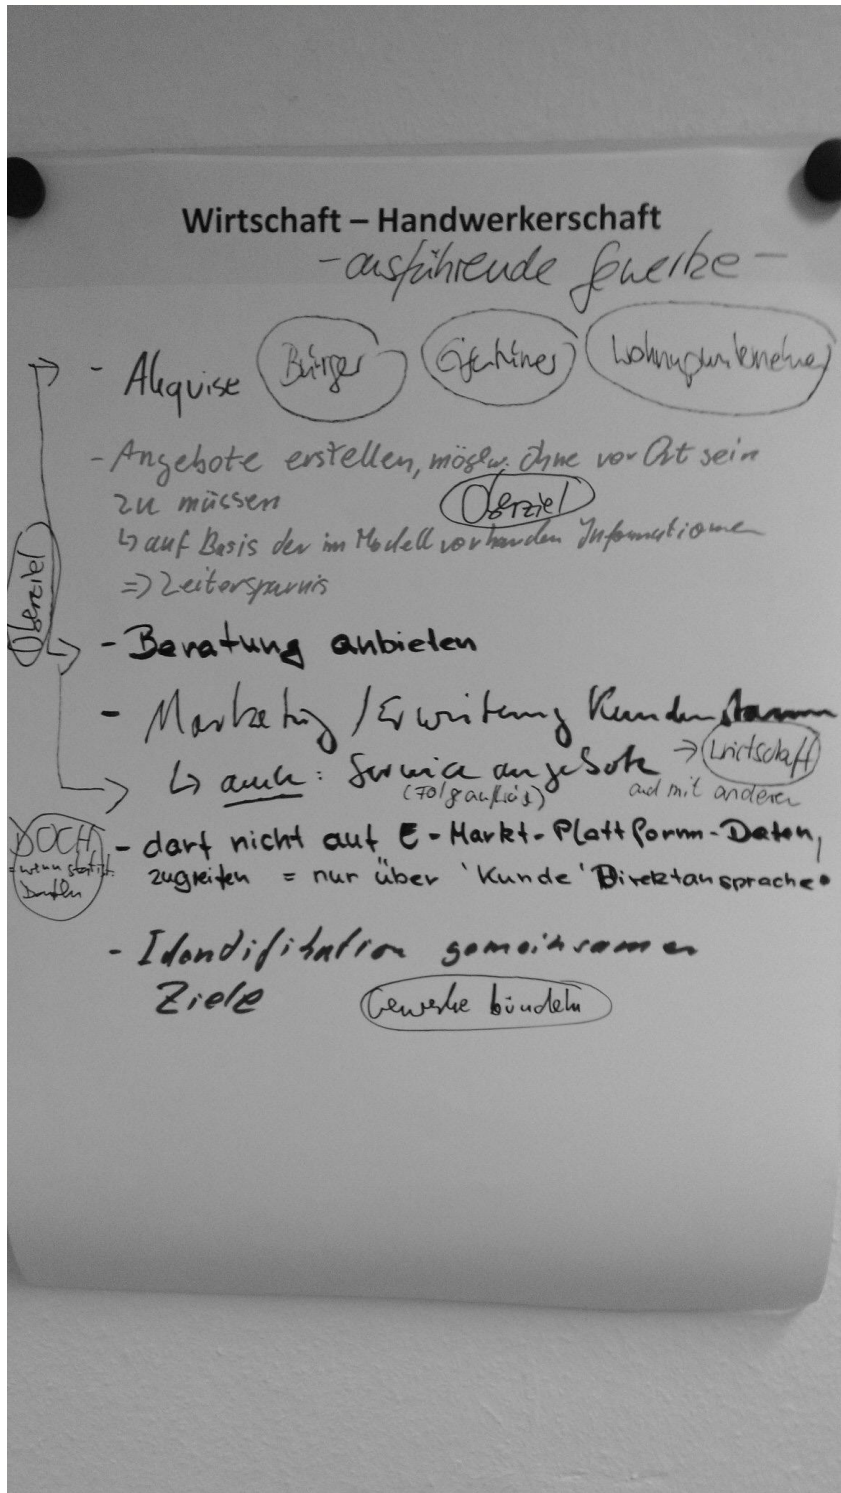 Wirtschaft – Handwerkerschaft
- ausführende Gewerke -
- Akquise Bürger Eigentümer
- Angebote erstellen, möglw. ohne vor Ort sein
zu müssen Oberziel
↳ auf Basis der im Modell vorhanden Informationen
=> Zeitersparnis
Oberziel
- Beratung anbieten
- Marketing / Erweiterung Kundenstamm
↳ auch: Service angebote → Wirtschaft
(Folgeaufträge) auch mit anderen
DOCH - darf nicht auf E-Markt-Plattform-Daten,
= wenn zugreifen = nur über 'Kunde' Direktansprache.
- Identifikation gemeinsamer
Ziele Gewerke bündeln